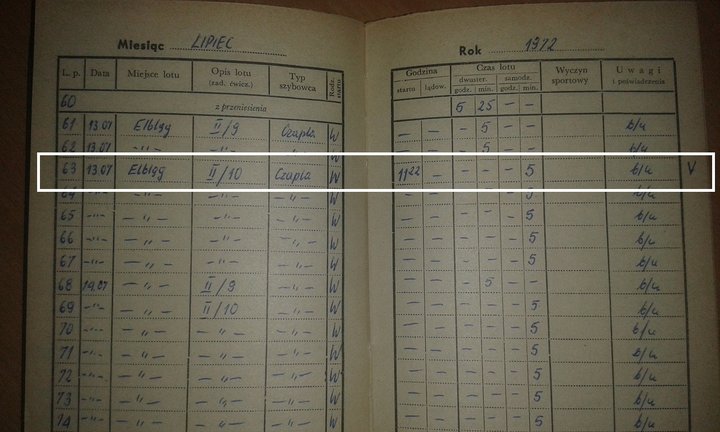 Miesiąc LIPIEC
Rok 1972
L. p. Data Miejsce lotu Opis lotu (zad. ćwicz.) Typ szybowca Rodz. startu Godzina startu lądow. Czas lotu dwuster. godz. min. samodz. godz. min. Wyczyn sportowy Uwagi i poświadczenia
60 z przeniesienia 6 25 — —
61 13.07 Elbląg II/9 Czapla W — — — 5 — — b/u
62 13.07 —„— —„— —„— W — — — 5 — — b/u
63 13.07 Elbląg II/10 Czapla W 11 22 — — — — 5 b/u V
64 —„— —„— —„— —„— W — — — — — 5 b/u
65 —„— —„— —„— —„— W — — — — — 5 b/u
66 —„— —„— —„— —„— W — — — — — 5 b/u
67 —„— —„— —„— —„— W — — — — — 5 b/u
68 19.07 —„— II/9 —„— W — — — 5 — — b/u
69 —„— —„— II/10 —„— W — — — — — 5 b/u
70 —„— —„— —„— —„— W — — — — — 5 b/u
71 —„— —„— —„— —„— W — — — — — 5 b/u
72 —„— —„— —„— —„— W — — — — — 5 b/u
73 —„— —„— —„— —„— W — — — — — 5 b/u
74 —„— —„— —„— —„— W — — — — — 5 b/u